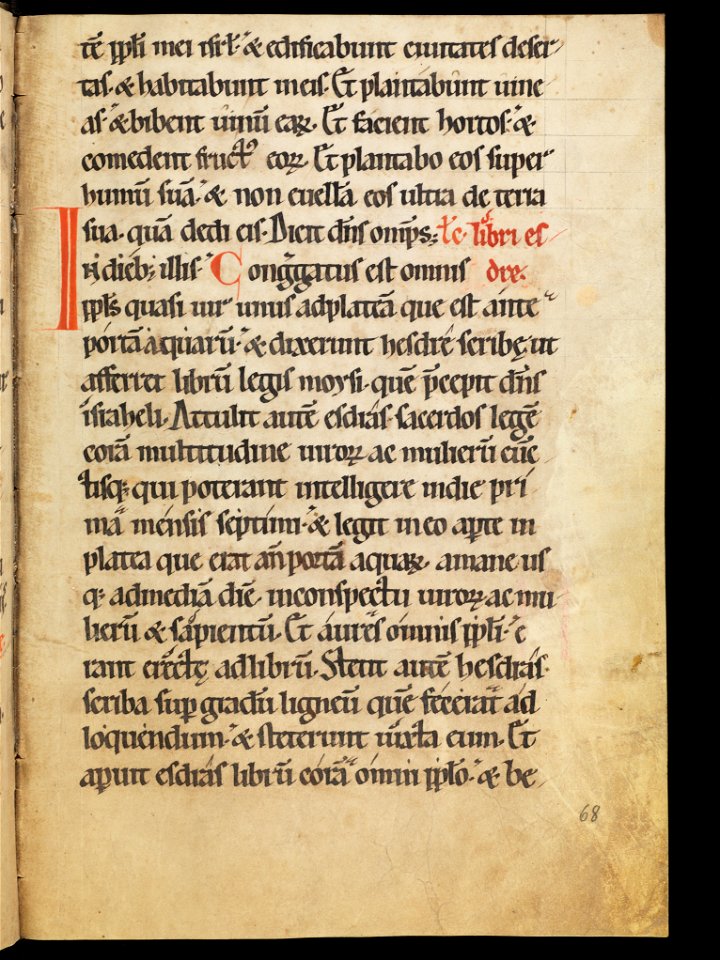 tē ppłi mei isrł· & edificabunt ciuitates deser
tas· & habitabunt in eis· Et plantabunt uine
as· & bibent uinū eaꝝ· Et facient hortos· &
comedent fructꝰ eoꝝ· Et plantabo eos super
humū suā· & non euellā eos ultra de terra
sua· quā dedi eis· Dicit dn̄s omp̄s· łc libri es
In dieb; illis· Congͣgatus est omnis dre·
ppłs quasi uir unus ad plateā que est ante
portā aquarū· & dixerunt hesdre scribę ut
afferret librū legis moysi· quē p̄cepit dn̄s
israheli· Attulit autē esdras sacerdos legē
corā multitudine uiroꝝ ac mulierū cūc
tisq; qui poterant intelligere in die pri
ma mensis septimi· & legit in eo aꝑte in
platea que erat an̄ portā aquaꝝ· a mane us
q; ad mediā diē· in conspectu uiroꝝ ac mu
lierū & sapientū· Et aures omnis ppłi· e
rant erectę ad librū· Stetit autē hesdras
scriba suꝑ gradū ligneū quē fecerat ad
loquendum· & steterunt iuxta eum· Et
aꝑuit esdras librū corā omni ppło· & be
68